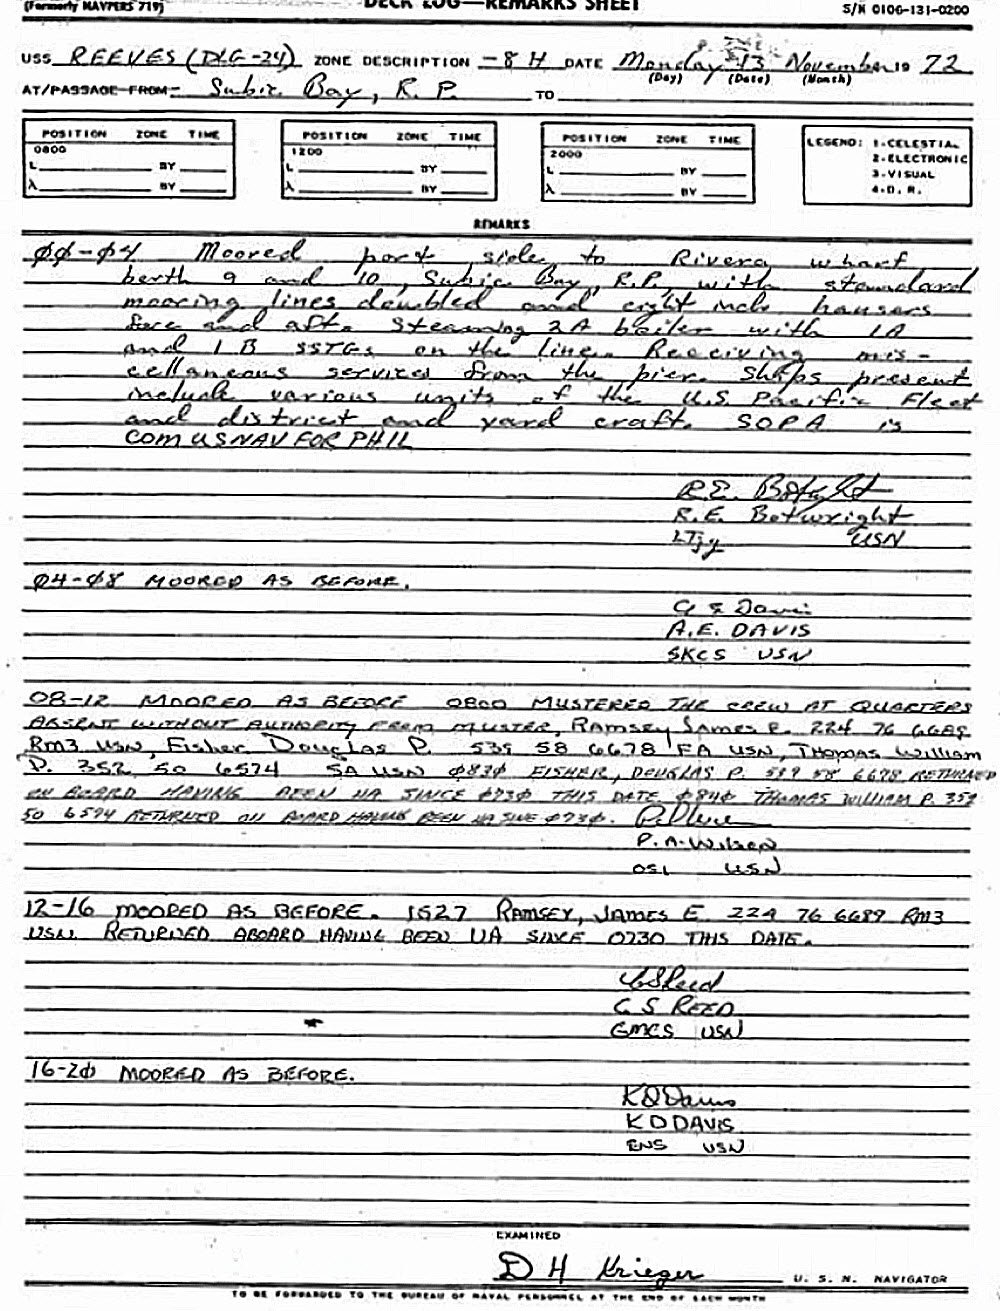 (Formerly NAVPERS 719)
DECK LOG—REMARKS SHEET
S/N 0106-131-0200
USS REEVES (DLG-24) ZONE DESCRIPTION -8 H DATE Monday 13 November 19 72
(Day) (Date) (Month)
AT/PASSAGE FROM- Subic Bay, R.P. TO
POSITION ZONE TIME
0800
L BY
λ BY
POSITION ZONE TIME
1200
L BY
λ BY
POSITION ZONE TIME
2000
L BY
λ BY
LEGEND: 1-CELESTIAL
2-ELECTRONIC
3-VISUAL
4-D. R.
REMARKS
00-04 Moored port side to Rivera wharf
berth 9 and 10, Subic Bay, R.P. with standard
mooring lines doubled and eight inch hawsers
fore and aft. Steaming 2A boiler with 1A
and 1B SSTGs on the line. Receiving mis-
cellaneous services from the pier. Ships present
include various units of the U.S. Pacific Fleet
and district and yard craft. SOPA is
COMUSNAVFORPHIL
R.E. Botwright
R.E. Botwright
LTjg USN
04-08 MOORED AS BEFORE.
A E Davis
A.E. DAVIS
SKCS USN
08-12 MOORED AS BEFORE 0800 MUSTERED THE CREW AT QUARTERS
ABSENT WITHOUT AUTHORITY FROM MUSTER, Ramsey James E. 224 76 6689
RM3 USN, Fisher Douglas P. 539 58 6678 FA USN, THOMAS William
P. 352 50 6574 SA USN 0830 FISHER, DOUGLAS P. 539 58 6678 RETURNED
ON BOARD HAVING BEEN UA SINCE 0730 THIS DATE 0840 THOMAS WILLIAM P. 352
50 6574 RETURNED ON BOARD HAVING BEEN UA SINCE 0730.
P.A. Wilson
OS1 USN
12-16 MOORED AS BEFORE. 1527 RAMSEY, JAMES E 224 76 6689 RM3
USN RETURNED ABOARD HAVING BEEN UA SINCE 0730 THIS DATE.
C S Reed
C S REED
GMCS USN
16-20 MOORED AS BEFORE.
K D Davis
K D DAVIS
ENS USN
EXAMINED
D H Krieger U. S. N. NAVIGATOR
TO BE FORWARDED TO THE BUREAU OF NAVAL PERSONNEL AT THE END OF EACH MONTH